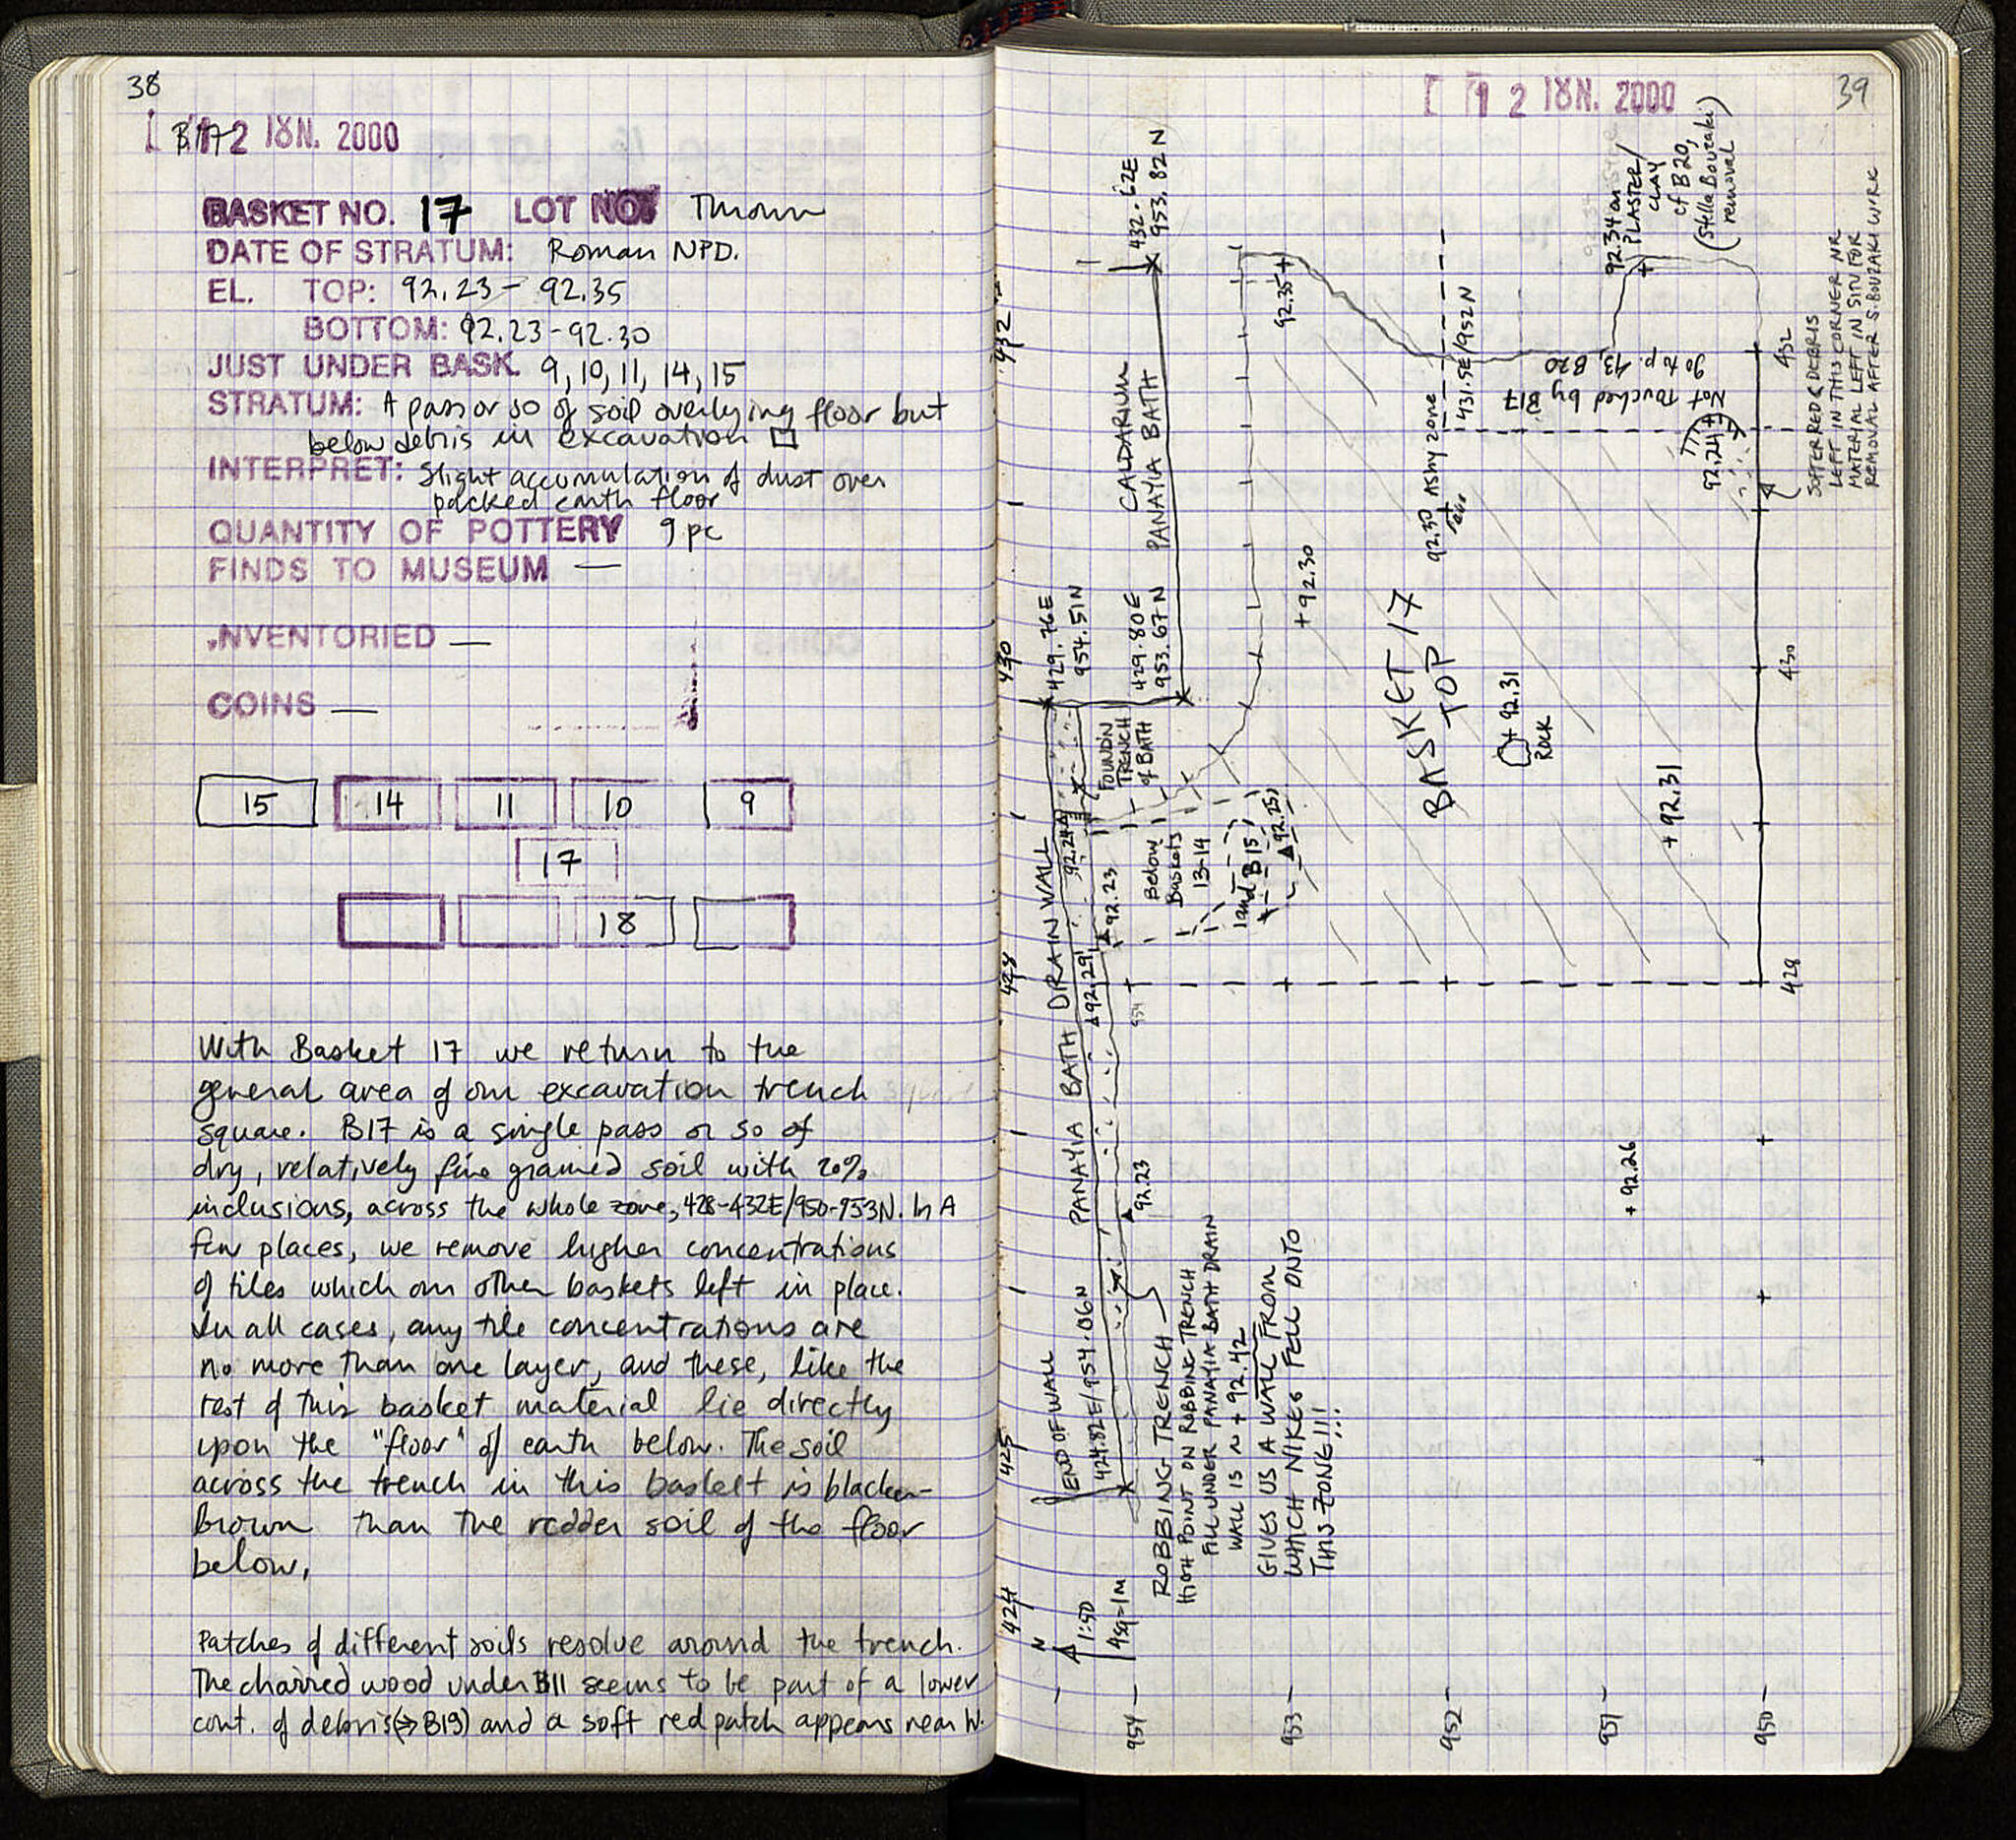 38
B17
12 IUN. 2000
BASKET NO. 17 LOT NO: Thrown
DATE OF STRATUM: Roman NPD.
EL. TOP: 92.23 - 92.35
BOTTOM: 92.23-92.30
JUST UNDER BASK. 9, 10, 11, 14, 15
STRATUM: A pass or so of soil overlying floor but
below debris in excavation □
INTERPRET: Slight accumulation of dust over
packed earth floor
QUANTITY OF POTTERY 9 pc
FINDS TO MUSEUM —
INVENTORIED —
COINS —
15 14 11 10 9
17
18
With Basket 17 we return to the
general area of our excavation trench
square. B17 is a single pass or so of
dry, relatively fine grained soil with 20%
inclusions, across the whole zone, 428-432E/950-953N. In A
few places, we remove higher concentrations
of tiles which our other baskets left in place.
In all cases, any tile concentrations are
no more than one layer, and these, like the
rest of this basket material lie directly
upon the "floor" of earth below. The soil
across the trench in this basket is blacker-
brown than the redder soil of the floor
below,
Patches of different soils resolve around the trench.
The charred wood under B11 seems to be part of a lower
cont. of debris (→B19) and a soft red patch appears near W.
12 IUN. 2000
39
432.62E
953.82N
92.34 on
PLASTER/
CLAY
cf B20,
(Stella Bouzaki)
removal
SOFTER RED DEBRIS
LEFT IN THIS CORNER NR
MATERIAL LEFT IN SITU FOR
REMOVAL AFTER S. BOUZAKI WORK
432
92.35
431.5E/952N
Not touched by B17
go to p. 43, B20
432
92.24
CALDARIUM
PANAYIA BATH
92.30 ASHY ZONE
+92.30
430
429.76E
954.51N
429.80E
953.67N
BASKET 17
TOP
+92.31
ROCK
430
FOUND'N
TRENCH
of BATH
+92.31
92.24
92.23
Below
Baskets
13-14
(and B15)
92.25
428
92.29
954
428
PANAYIA BATH DRAIN WALL
92.23
+92.26
END OF WALL
424.82E/954.06N
425
ROBBING TRENCH
HIGH POINT ON ROBBING TRENCH
FILL UNDER PANAYIA BATH DRAIN
WALL IS ~ +92.42
GIVES US A WALL FROM
WHICH NIKES FELL ONTO
THIS ZONE!!!
424
N
1:50
4sq=1M
954
953
952
951
950